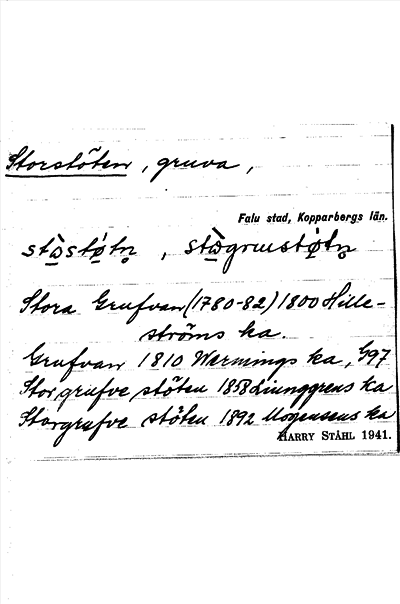 Storstöten, gruva,
Falu stad, Kopparbergs län.
Stora Grufvan (1780-82) 1800 Hille-
ströms ka.
Grufvan 1810 Wermings ka, G97
Storgrufve stöten 1858 Ljunggrens ka
Storgrufve stöten 1892 Mogensens ka
HARRY STÅHL 1941.